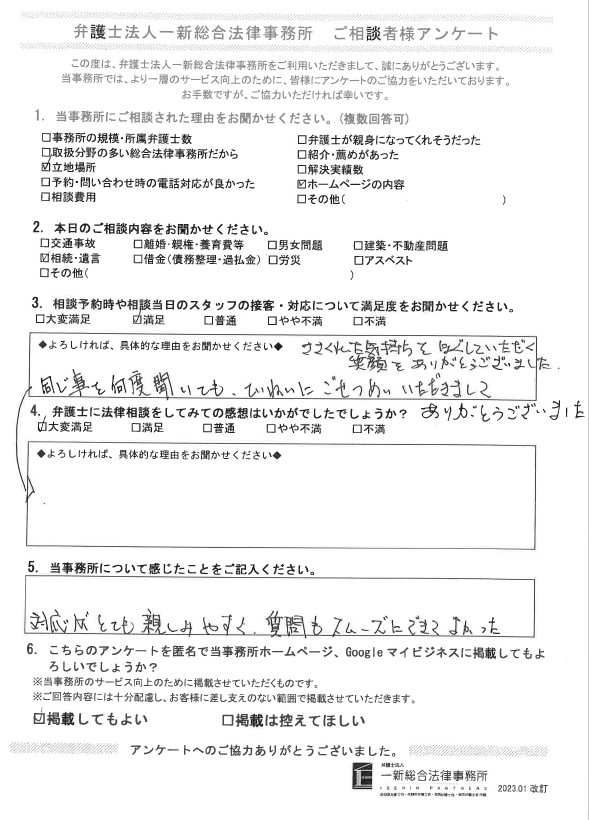 弁護士法人一新総合法律事務所　ご相談者様アンケート
この度は、弁護士法人一新総合法律事務所をご利用いただきまして、誠にありがとうございます。
当事務所では、より一層のサービス向上のために、皆様にアンケートのご協力をいただいております。
お手数ですが、ご協力いただければ幸いです。
1．当事務所にご相談された理由をお聞かせください。(複数回答可)
□事務所の規模・所属弁護士数　□弁護士が親身になってくれそうだった
□取扱分野の多い総合法律事務所だから　□紹介・薦めがあった
☑立地場所　□解決実績数
□予約・問い合わせ時の電話対応が良かった　☑ホームページの内容
□相談費用　□その他(　)
2．本日のご相談内容をお聞かせください。
□交通事故　□離婚・親権・養育費等　□男女問題　□建築・不動産問題
☑相続・遺言　□借金(債務整理・過払金)　□労災　□アスベスト
□その他(　)
3．相談予約時や相談当日のスタッフの接客・対応について満足度をお聞かせください。
□大変満足　☑満足　□普通　□やや不満　□不満
◆よろしければ、具体的な理由をお聞かせください◆　ささくれた気持ちをほぐしていただく
笑顔をありがとうございました．
同じ事を何度聞いても、ていねいにごせつめいいただきまして
4．弁護士に法律相談をしてみての感想はいかがでしたでしょうか？　ありがとうございました
☑大変満足　□満足　□普通　□やや不満　□不満
◆よろしければ、具体的な理由をお聞かせください◆
5．当事務所について感じたことをご記入ください。
対応がとても親しみやすく、質問もスムーズにできてよかった
6．こちらのアンケートを匿名で当事務所ホームページ、Googleマイビジネスに掲載してもよ
ろしいでしょうか？
※当事務所のサービス向上のために掲載させていただくものです。
※ご回答内容には十分配慮し、お客様に差し支えのない範囲で掲載させていただきます。
☑掲載してもよい　□掲載は控えてほしい
アンケートへのご協力ありがとうございました。
弁護士法人
一新総合法律事務所
ISSHIN PARTNERS
2023.01 改訂